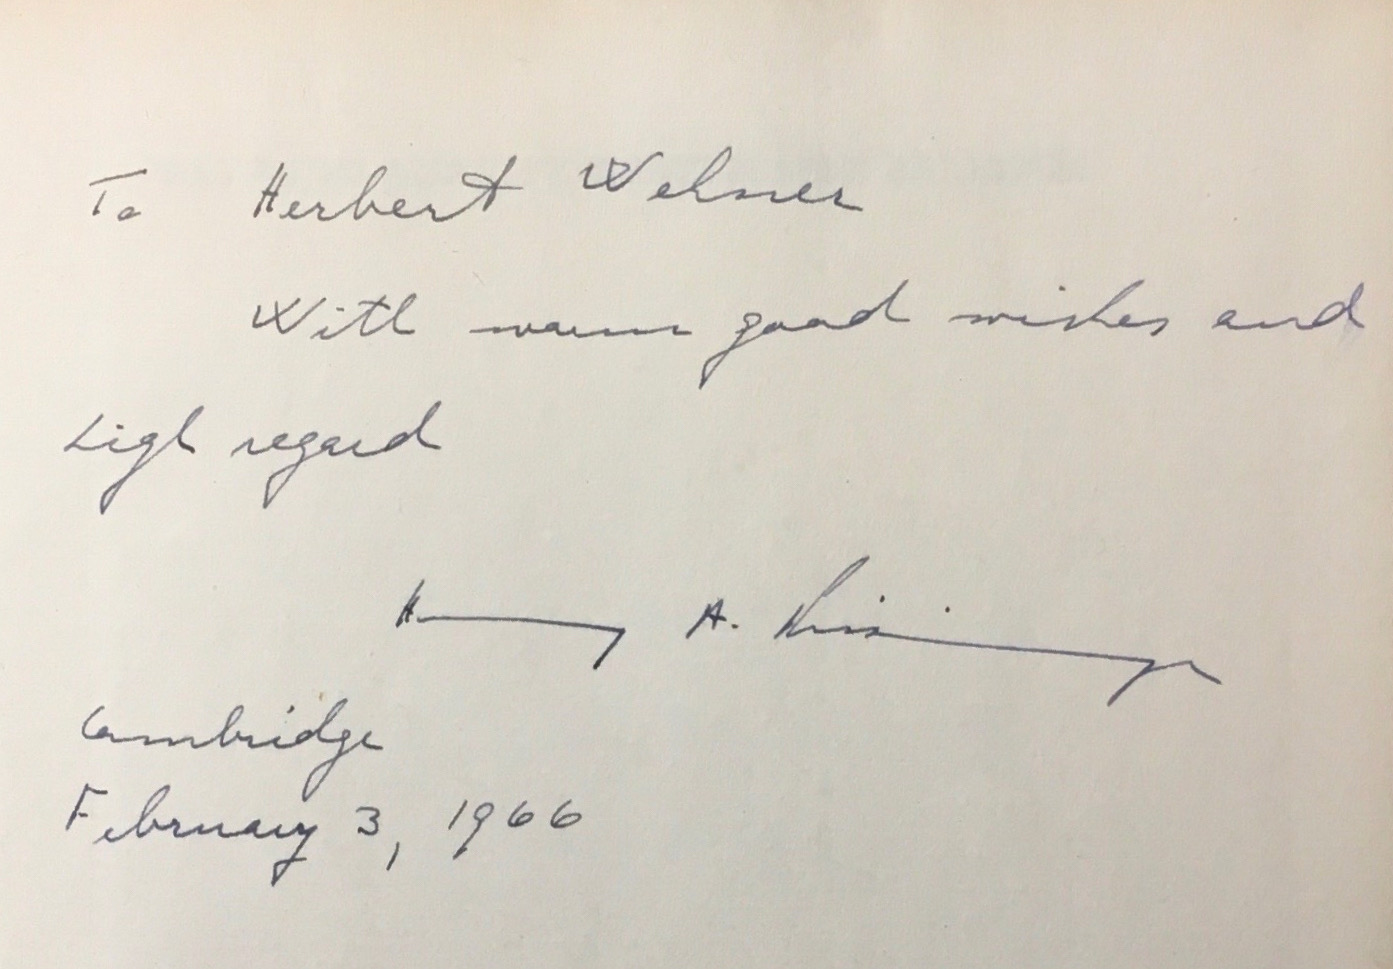 To Herbert Wehner
With warm good wishes and
high regard
Henry A. Kissinger
Cambridge
February 3, 1966